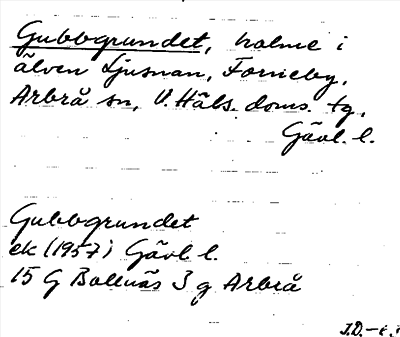 Gubbgrundet, holme i
älven Ljusnan, Forneby,
Arbrå sn, V. Häls. doms. tg,
Gävl. l.
Gubbgrundet
ek (1957) Gävl l.
15 G Bollnäs 3 g Arbrå
J.D.-